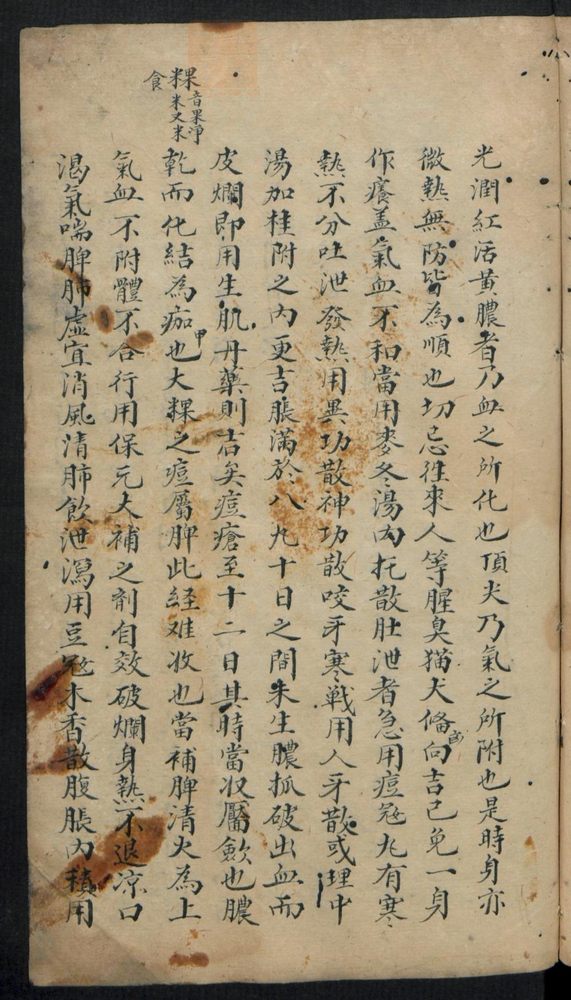 光潤紅活黃膿者乃血之所化也頂尖乃氣之所附也是時身亦
微熱無防皆為順也切忌徃來人等腥臭猫犬偹向吉己免一身
作癢盖氣血不和當用麥冬湯內托散肚泄者急用痘㓂九有寒
熱不分吐泄發熱用異功散神功散咬牙寒戦用人牙散或理中
湯加桂附之內更吉脹滿於八九十日之間未生膿抓破出血而
皮爛即用生肌丹藥則吉矣痘瘡至十二日其時當収靨斂也膿
乾而化結為痂也大粿之痘屬脾此経难收也當補脾清火為上
甲
氣血不附體不合行用保元大補之剤自效破爛身熱不退凉口
渴氣喘脾肺虛宜消風清肺飲泄瀉用豆㓂木香散腹脹內積用
粿
音果净
米又米
食